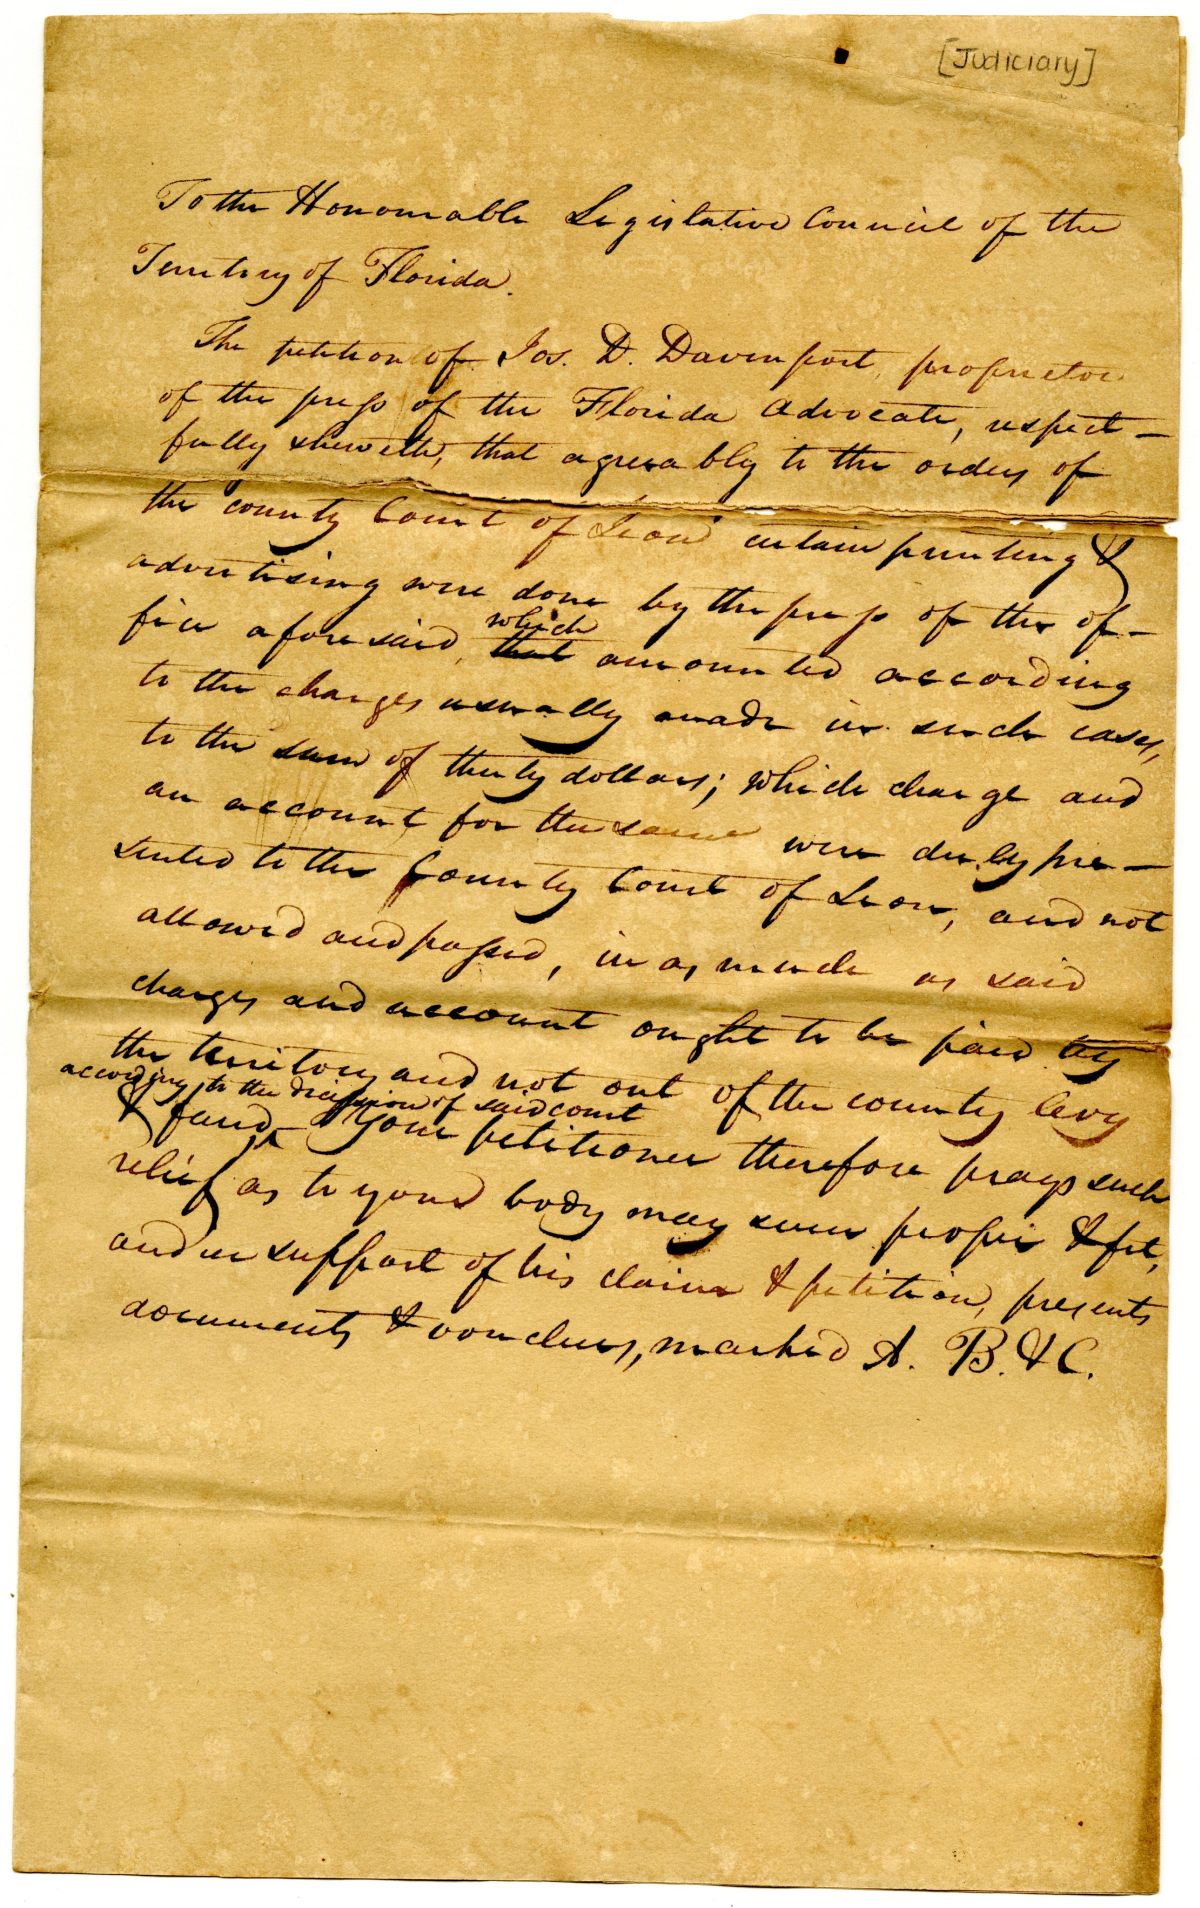 [Judiciary]
To the Honourable Legislative Council of the
Territory of Florida.
The petition of Jos. D. Davenport, proprietor
of the press of the Florida Advocate, respect-
fully sheweth, that agreeably to the orders of
the county Court of Leon certain printing &
advertising were done by the press of the of-
fice aforesaid, that amounted according
which
to the charges usually made in such cases,
to the sum of thirty dollars; which charge and
an account for the same were duly pre-
sented to the County Court of Leon, and not
allowed and passed, in as much as said
charges and account ought to be paid by
the territory and not out of the county levy
according to the decission of said court
& fund, Your petitioner therefore prays such
relief as to your body may seem proper & fit,
and in support of his claim & petition, presents
documents & vouchers, marked A. B. & C.